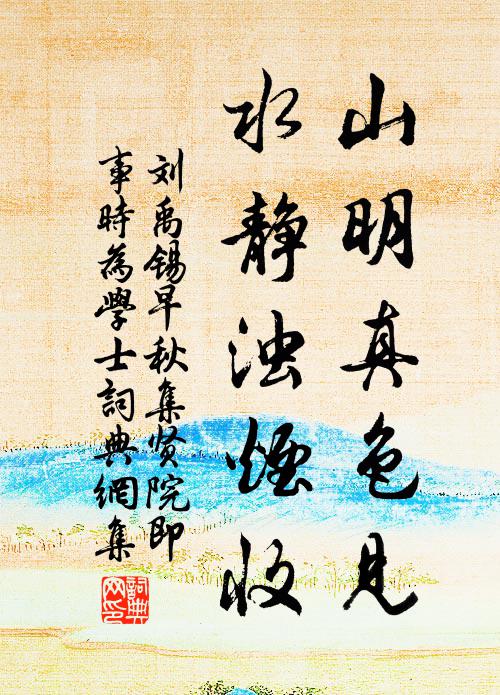 山明真色见
水静浊烟收
刘禹锡早秋集贤院即
事時為學士詞典網集